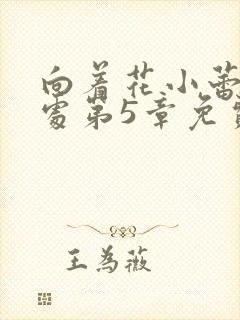 向着花小蕾
处第5章免
王为薇